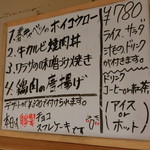 1.春キャベツのホイコウロー
2.牛カルビ焼肉丼
3.ワラサの味噌づけ焼き
4.鶏肉の唐揚げ
デザートが
チョコ
スフレケーキ です
¥780
ライス、サラダ
ドリンク
付きます。
ドリンク
コーヒー or 紅茶
(アイス
or
ホット)